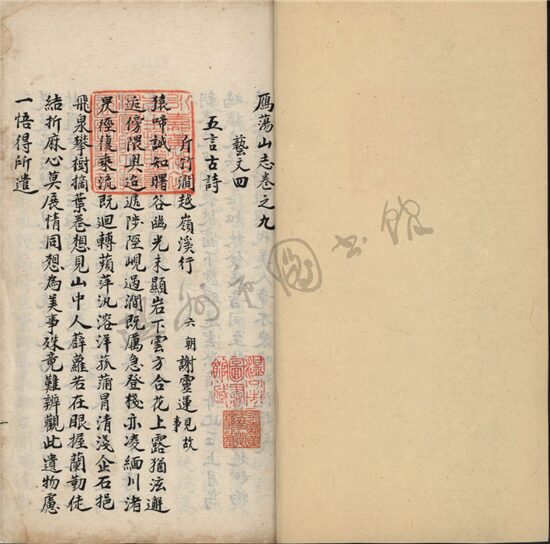 雁蕩山志卷之九
藝文四
五言古詩
斤竹澗越嶺溪行 六朝 謝靈運見故事
猿啼誠知曙谷幽光未顯岩下雲方合花上露猶泫
迤傍隈隩迢遞陟陘峴過澗既厲急登棧亦凌緬川渚
徑復乘流既迴轉蘋萍汎溶洋菰蒲冒清淺企石挹
飛泉攀樹摘葉卷想見山中人薜蘿若在眼握蘭勤徒
結折麻心莫展情同想為美事殊竟難辨觀此遺物慮
一悟得所遣
溫州市圖書館藏